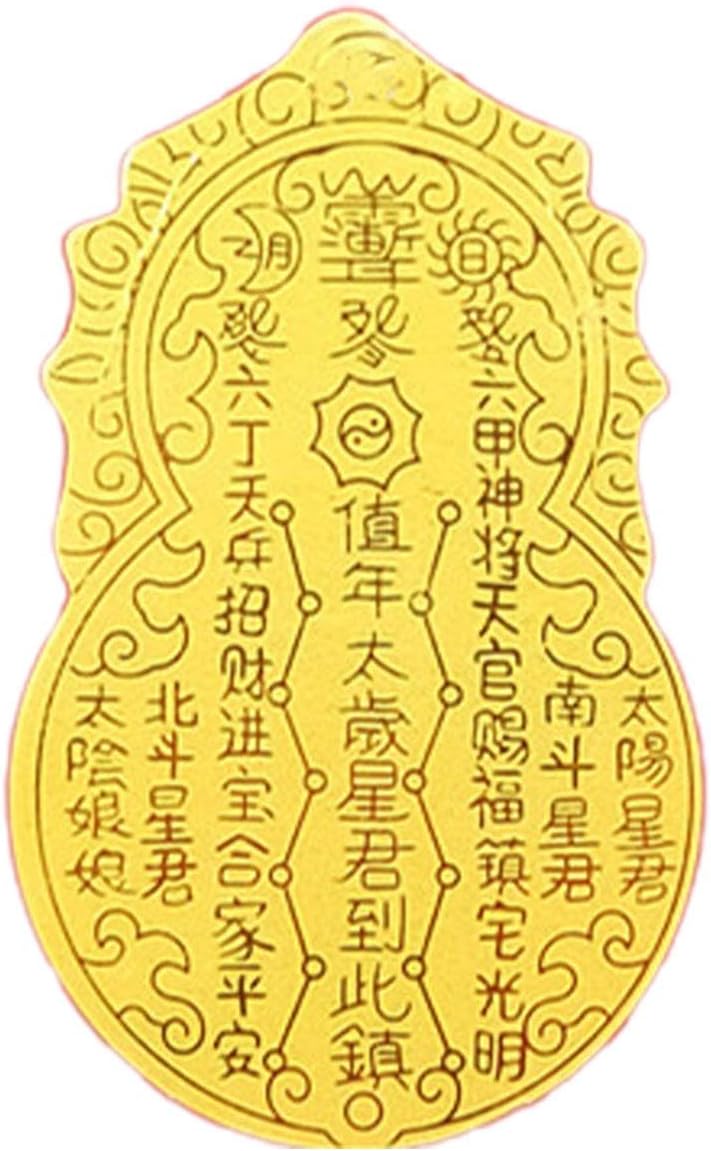 日
太陽星君
南斗星君
六甲神将天官赐福鎮宅光明
值年太歲星君到此鎮
月
六丁天兵招财进宝合家平安
北斗星君
太陰娘娘